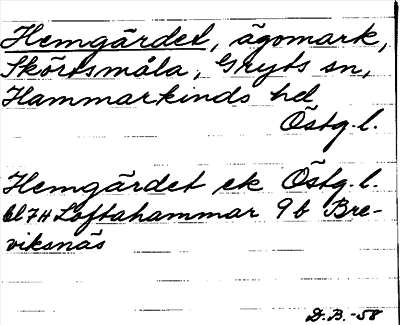 Hemgärdet, ägomark,
Skörtsmåla, Gryts sn,
Hammarkinds hd
Östg. l.
Hemgärdet ek Östg. l.
bl 7H Loftahammar 9b Bre-
viksnäs
D.B. -58